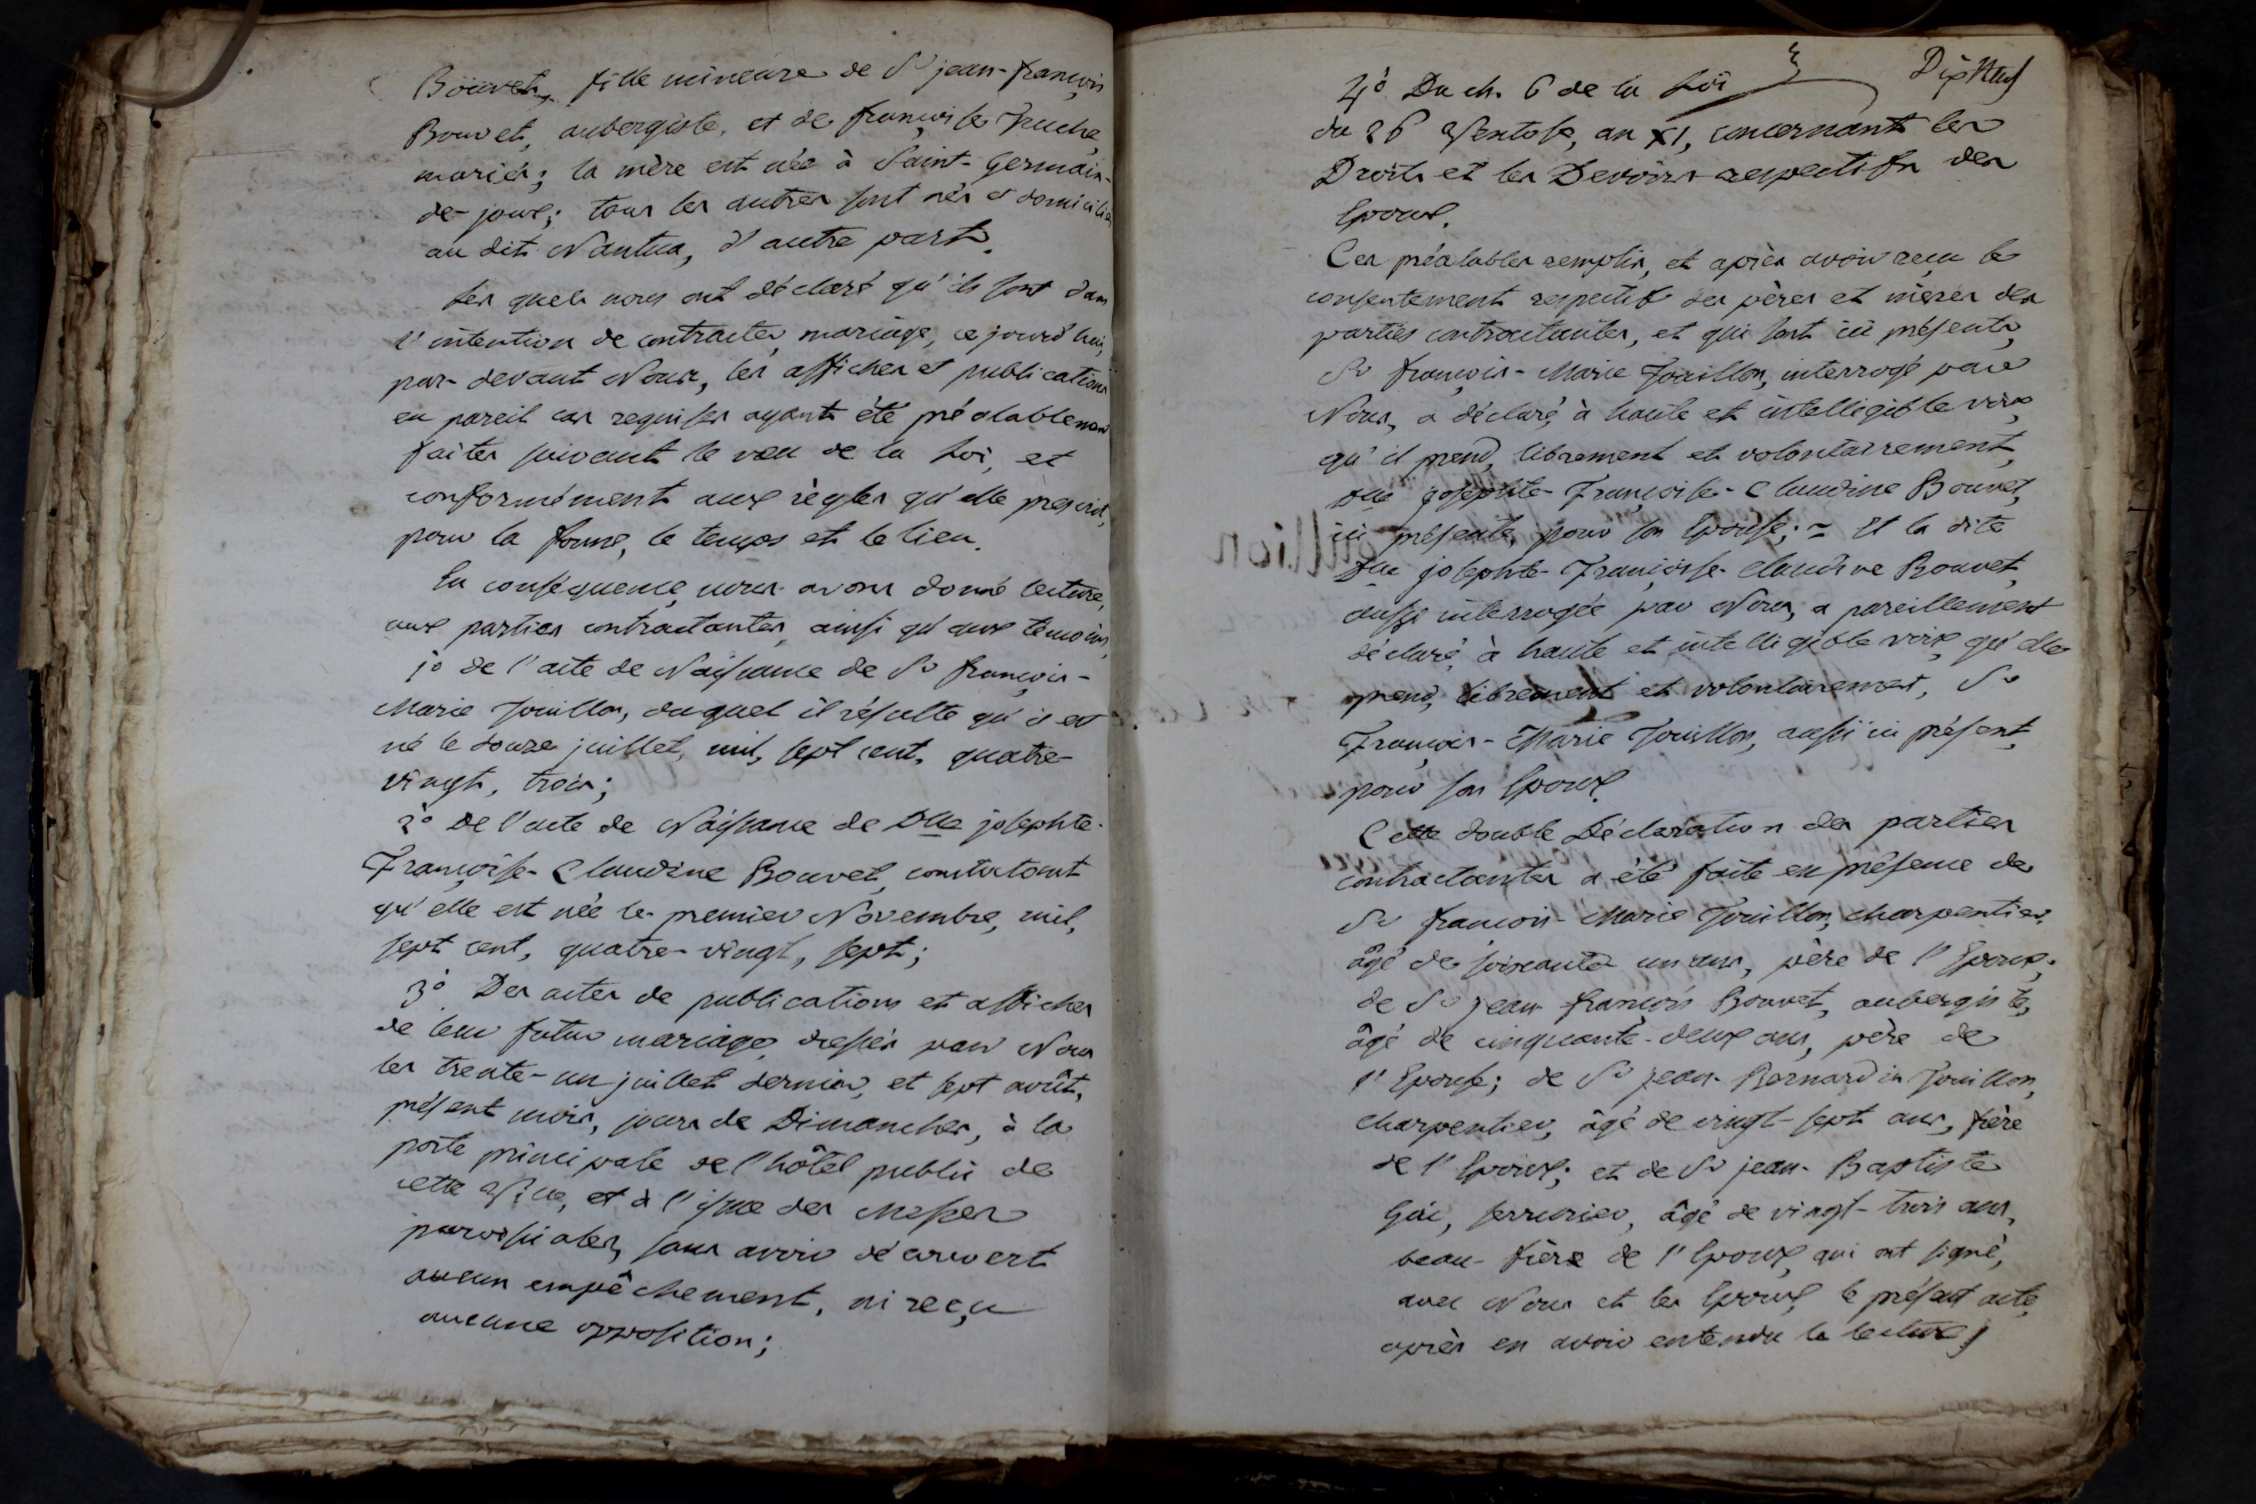 Bouvet, fille mineure de Sr jean-françois
Bouvet, aubergiste, et de françoise Juche,
mariés; la mère est née à Saint-Germain-
de-joux; tous les autres sont nés et domiciliés
au dit Nantua, d'autre part.
Les quels nous ont déclaré qu'ils sont dans
l'intention de contracter mariage, ce jourd'hui,
par-devant Nous, les affiches et publications
en pareil cas requises ayant été préalablement
faites suivant le vœu de la Loi, et
conformément aux règles qu'elle prescrit,
pour la forme, le temps et le lieu.
En conséquence, nous avons donné lecture,
aux parties contractantes, ainsi qu'aux témoins,
1o de l'acte de Naissance de Sr françois-
Marie Jouillon, duquel il résulte qu'il est
né le douze juillet, mil, sept cent, quatre-
vingt, trois;
2o De l'acte de Naissance de Dlle josephte-
Françoise-Claudine Bouvet, constatant
qu'elle est née le premier Novembre, mil,
sept cent, quatre-vingt, sept;
3o Des actes de publications et affiches
de leur futur mariage, dressés par Nous
les trente-un juillet dernier, et sept août,
présent mois, jours de Dimanches, à la
porte principale de l'hôtel public de
cette Ville, et à l'issue des Messes
paroissiales, sans avoir découvert
aucun empêchement, ni reçu
aucune opposition;
Dix Neuf
4o Du ch. 6 de la Loi
du 26 Ventose, an XI, concernant les
Droits et les Devoirs respectifs des
Epoux.
Ces préalables remplis, et après avoir reçu le
consentement respectif des pères et mères des
parties contractantes, et qui sont ici présents,
Sr françois-Marie Jouillon, interrogé par
Nous, a déclaré à haute et intelligible voix,
qu'il prend, librement et volontairement,
Dlle josephte-Françoise-Claudine Bouvet,
ici présente, pour son Epouse; = Et la dite
Dlle josephte-Françoise-Claudine Bouvet,
aussi interrogée par Nous, a pareillement
déclaré à haute et intelligible voix, qu'elle
prend, librement et volontairement, Sr
François-Marie Jouillon, aussi ici présent,
pour son Epoux.
Cette double Déclaration des parties
contractantes a été faite en présence de
Sr françois-Marie Jouillon, charpentier,
âgé de soixante un ans, père de l'Epoux;
de Sr jean françois Bouvet, aubergiste,
âgé de cinquante-deux ans, père de
l'Epouse; de Sr jean-Bernardin Jouillon,
charpentier, âgé de vingt-sept ans, frère
de l'Epoux; et de Sr jean-Baptiste
serrurier, âgé de vingt-trois ans,
beau-frère de l'Epoux, qui ont signé,
avec Nous et les Epoux, le présent acte,
après en avoir entendu la lecture;